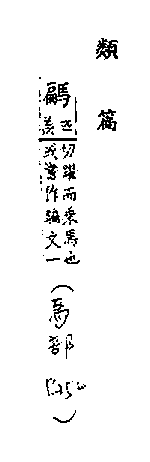 類篇
騗匹羨切躍而乘馬也
或書作騙文一
(馬部)